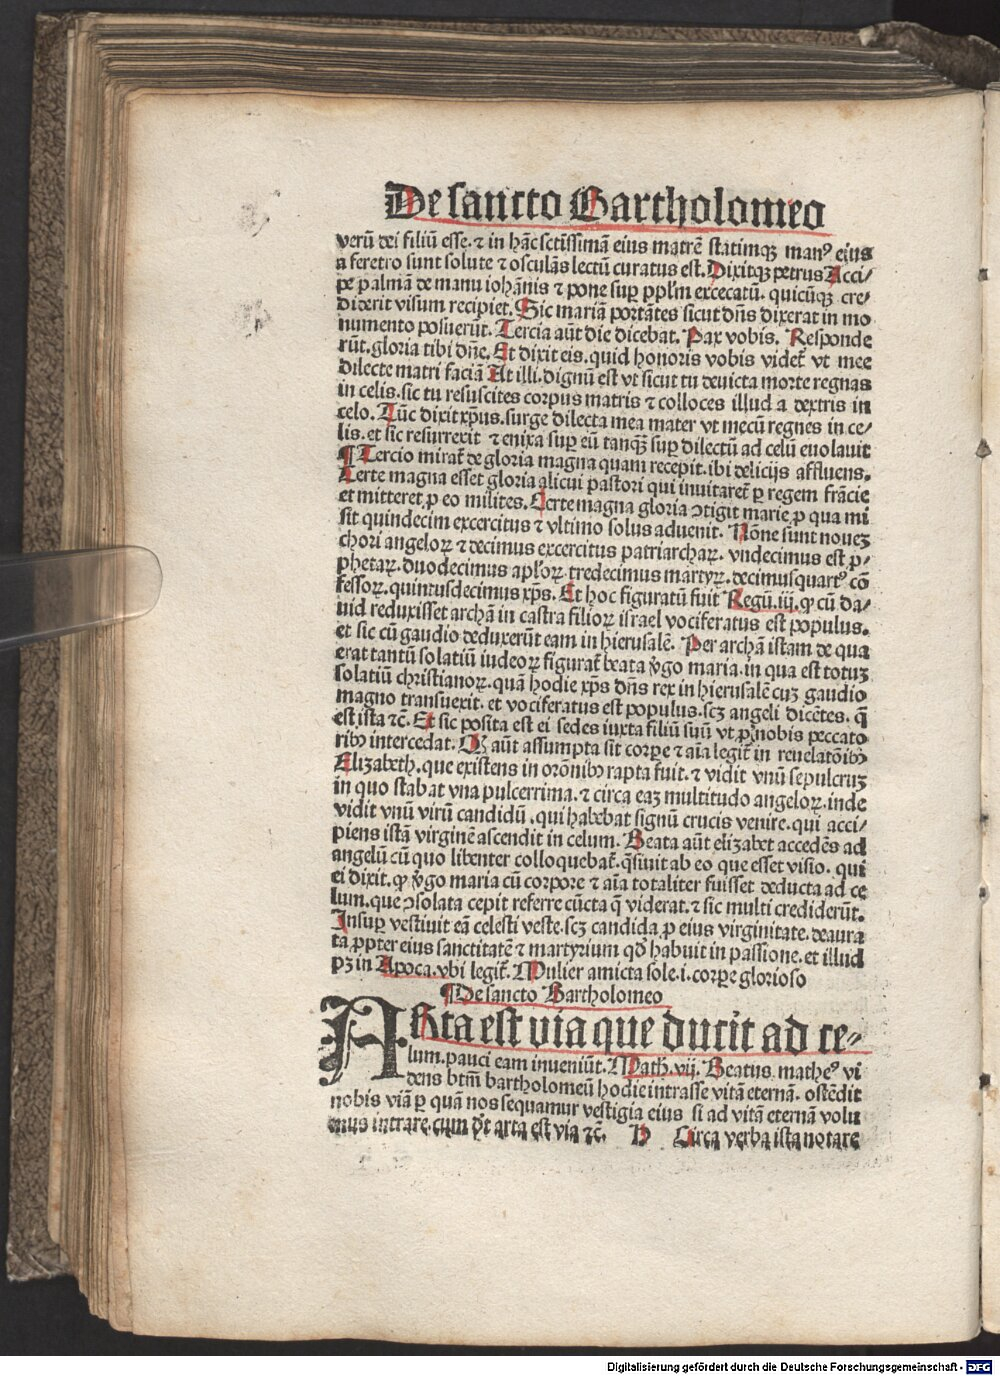 De sancto Bartholomeo
verū dei filiū esse. ⁊ in hāc sctīssimā eius matrē statimqꝫ manꝰ eius
a feretro sunt solute ⁊ osculās lectū curatus est. Dixitqꝫ petrus Acci/
pe palmā de manu iohānis ⁊ pone suꝑ ppl'm excecatū. quicūqꝫ cre/
diderit visum recipiet. Sic mariā portātes sicut dn̄s dixerat in mo
numento posuerūt. Tercia aūt die dicebat. Pax vobis. Responde
rūt. gloria tibi dn̄e. Et dixit eis. quid honoris vobis videt̄ vt mee
dilecte matri faciā At illi. dignū est vt sicut tu deuicta morte regnas
in celis. sic tu resuscites corpus matris ⁊ colloces illud a dextris in
celo. Tūc dixit xp̄us. surge dilecta mea mater vt mecū regnes in ce/
lis. et sic resurrexit ⁊ enixa suꝑ eū tanqꝫ suꝑ dilectū ad celū euolauit
¶ Tercio mirat̄ de gloria magna quam recepit. ibi delicijs affluens.
Certe magna esset gloria alicui pastori qui inuitaret̄ ꝑ regem frācie
et mitteret ꝓ eo milites. Certe magna gloria ↄtigit marie ꝓ qua mi
sit quindecim excercitus ⁊ vltimo solus aduenit. Nōne sunt noueꝫ
chori angeloꝝ ⁊ decimus excercitus patriarchaꝝ. vndecimus est ꝓ/
phetaꝝ. duodecimus apl'oꝝ tredecimus martyꝝ. decimusquartꝰ cō
fessoꝝ. quintusdecimus xp̄s. Et hoc figuratū fuit Regū. iij. ꝙ cū da/
uid reduxisset archā in castra filioꝝ israel vociferatus est populus.
et sic cū gaudio deduxerūt eam in hierusalē. Per archā istam de qua
erat tantū solatiū iudeoꝝ figurat̄ beata v̄go maria. in qua est totuꝫ
solatiū christianoꝝ. quā hodie xp̄s dn̄s rex in hierusalē cuꝫ gaudio
magno transuexit. et vociferatus est populus. scꝫ angeli dicētes. q̄
est ista ⁊c̄. Et sic posita est ei sedes iuxta filiū suū vt ꝓ nobis peccato
ribꝰ intercedat. Qꝫ aūt assumpta sit corꝑe ⁊ aīa legit̄ in reuelatōibꝰ
Elizabeth. que existens in orōnibꝰ rapta fuit. ⁊ vidit vnū sepulcruꝫ
in quo stabat vna pulcerrima. ⁊ circa eaꝫ multitudo angeloꝝ. inde
vidit vnū virū candidū. qui habebat signū crucis venire. qui acci/
piens istā virginē ascendit in celum. Beata aūt elizabet accedēs ad
angelū cū quo libenter colloquebat̄. q̄siuit ab eo que esset visio. qui
ei dixit. ꝙ v̄go maria cū corpore ⁊ aīa totaliter fuisset deducta ad ce
lum. que ↄsolata cepit referre cūcta q̄ viderat. ⁊ sic multi crediderūt.
Insuꝑ vestiuit eā celesti veste. scꝫ candida ꝓ eius virginitate. deaura
ta ꝓpter eius sanctitatē ⁊ martyrium qd̄ habuit in passione. et illud
pꝫ in Apoca. vbi legit̄. Mulier amicta sole. i. corꝑe glorioso
¶ De sancto Bartholomeo
ARta est via que ducit ad ce-
lum. pauci eam inueniūt. Math. vij. Beatus matheꝰ vi
dens btm̄ bartholomeū hodie intrasse vitā eternā. ostēdit
nobis viā ꝑ quā nos sequamur vestigia eius si ad vitā eternā volu
mus intrare. cum dr̄t arta est via ⁊c̄. Circa verba ista notare
Digitalisierung gefördert durch die Deutsche Forschungsgemeinschaft - DFG